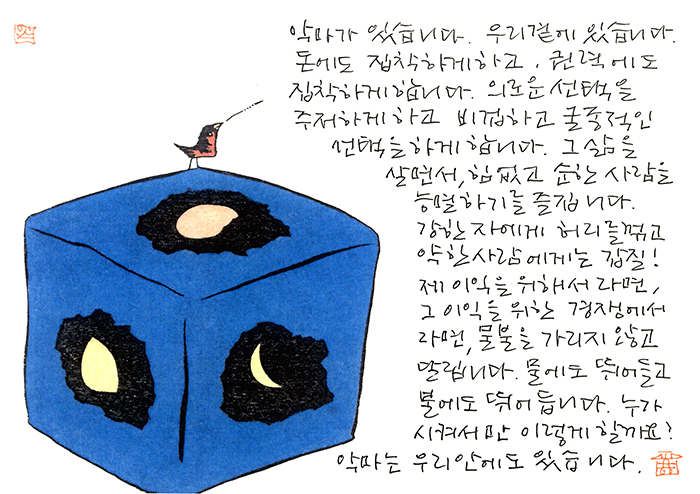 악마가 있습니다. 우리곁에 있습니다.
돈에도 집착하게하고, 권력에도
집착하게합니다. 의로운 선택을
주저하게 하고 비겁하고 굴종적인
선택을 하게 합니다. 그 삶을
살면서, 힘없고 순한 사람을
능멸하기를 즐깁니다.
강한 자에게 허리를 꺾고
약한 사람에게는 갑질!
제 이익을 위해서 라면,
그 이익을 위한 경쟁에서
라면, 물불을 가리지 않고
달립니다. 물에도 뛰어들고
불에도 뛰어 듭니다. 누가
시켜서만 이렇게 할까요?
악마는 우리안에도 있습니다.